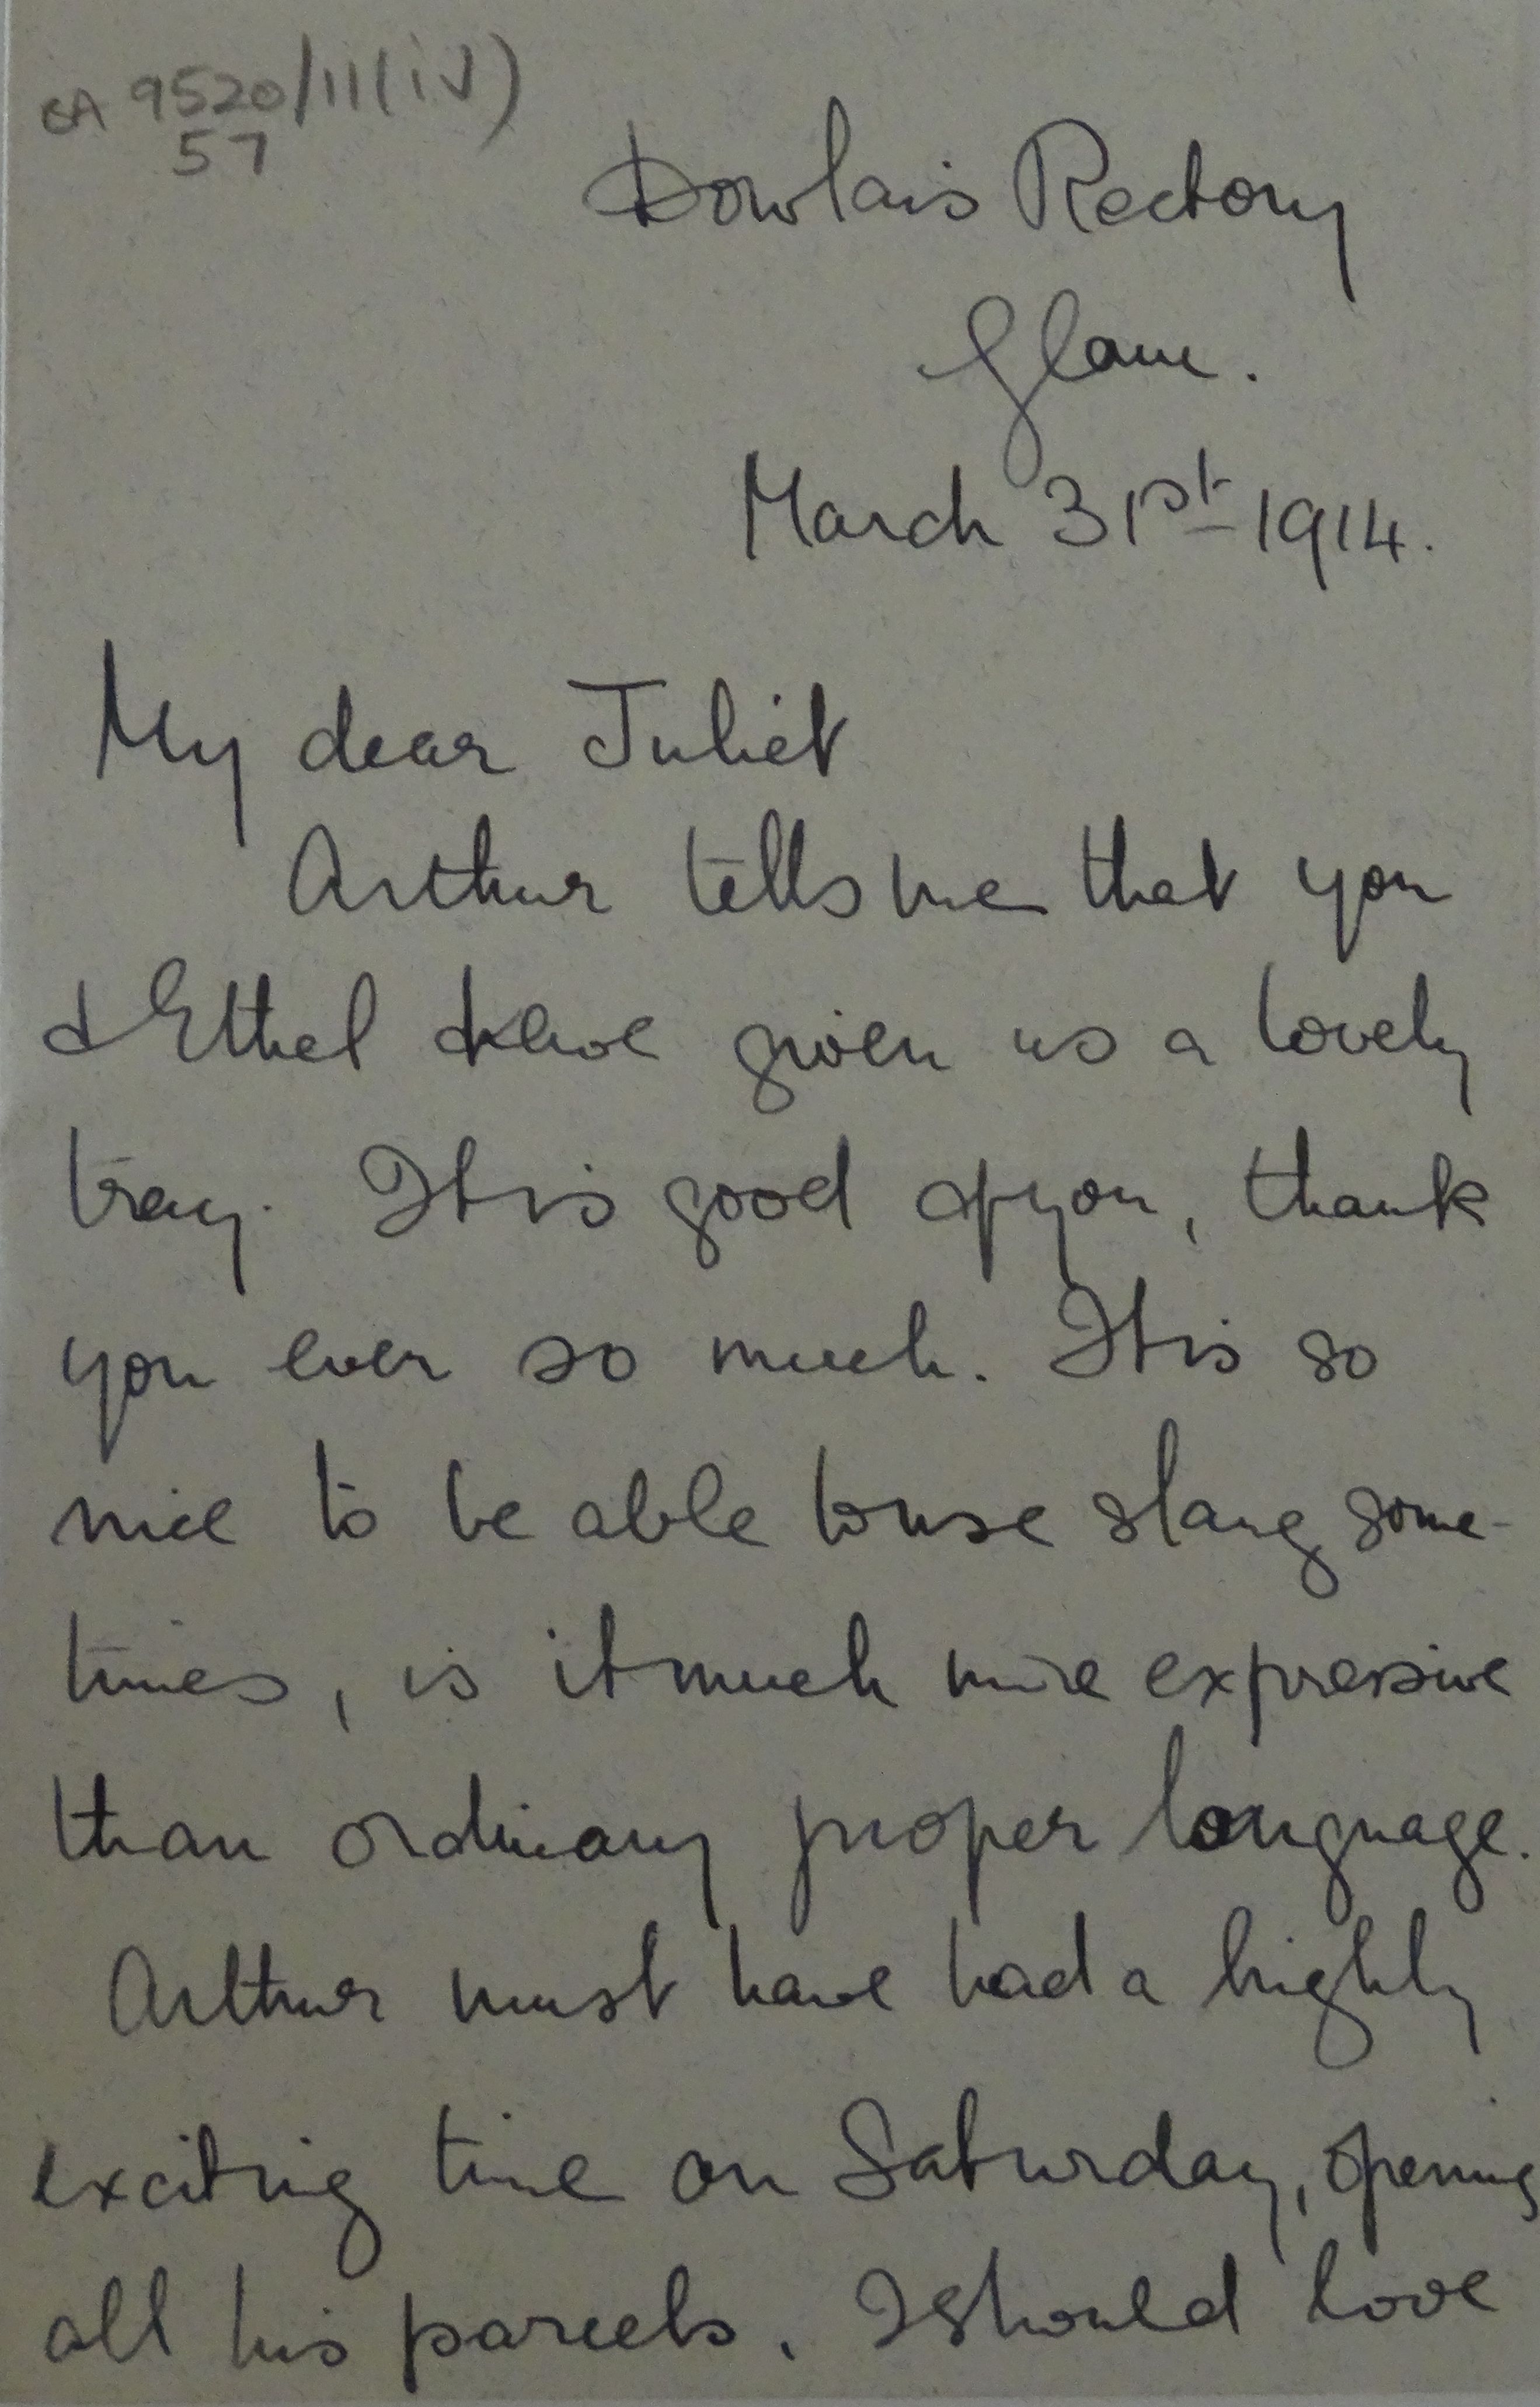 BA 9520/11(iv)
57
Dowlais Rectory
Glam.
March 31st 1914.
My dear Juliet
Arthur tells me that you
& Ethel have given us a lovely
tray. It is good of you, thank
you ever so much. It is so
nice to be able to use slang some-
times, is it much more expressive
than ordinary proper language.
Arthur must have had a highly
exciting time on Saturday, opening
all his parcels. I should love